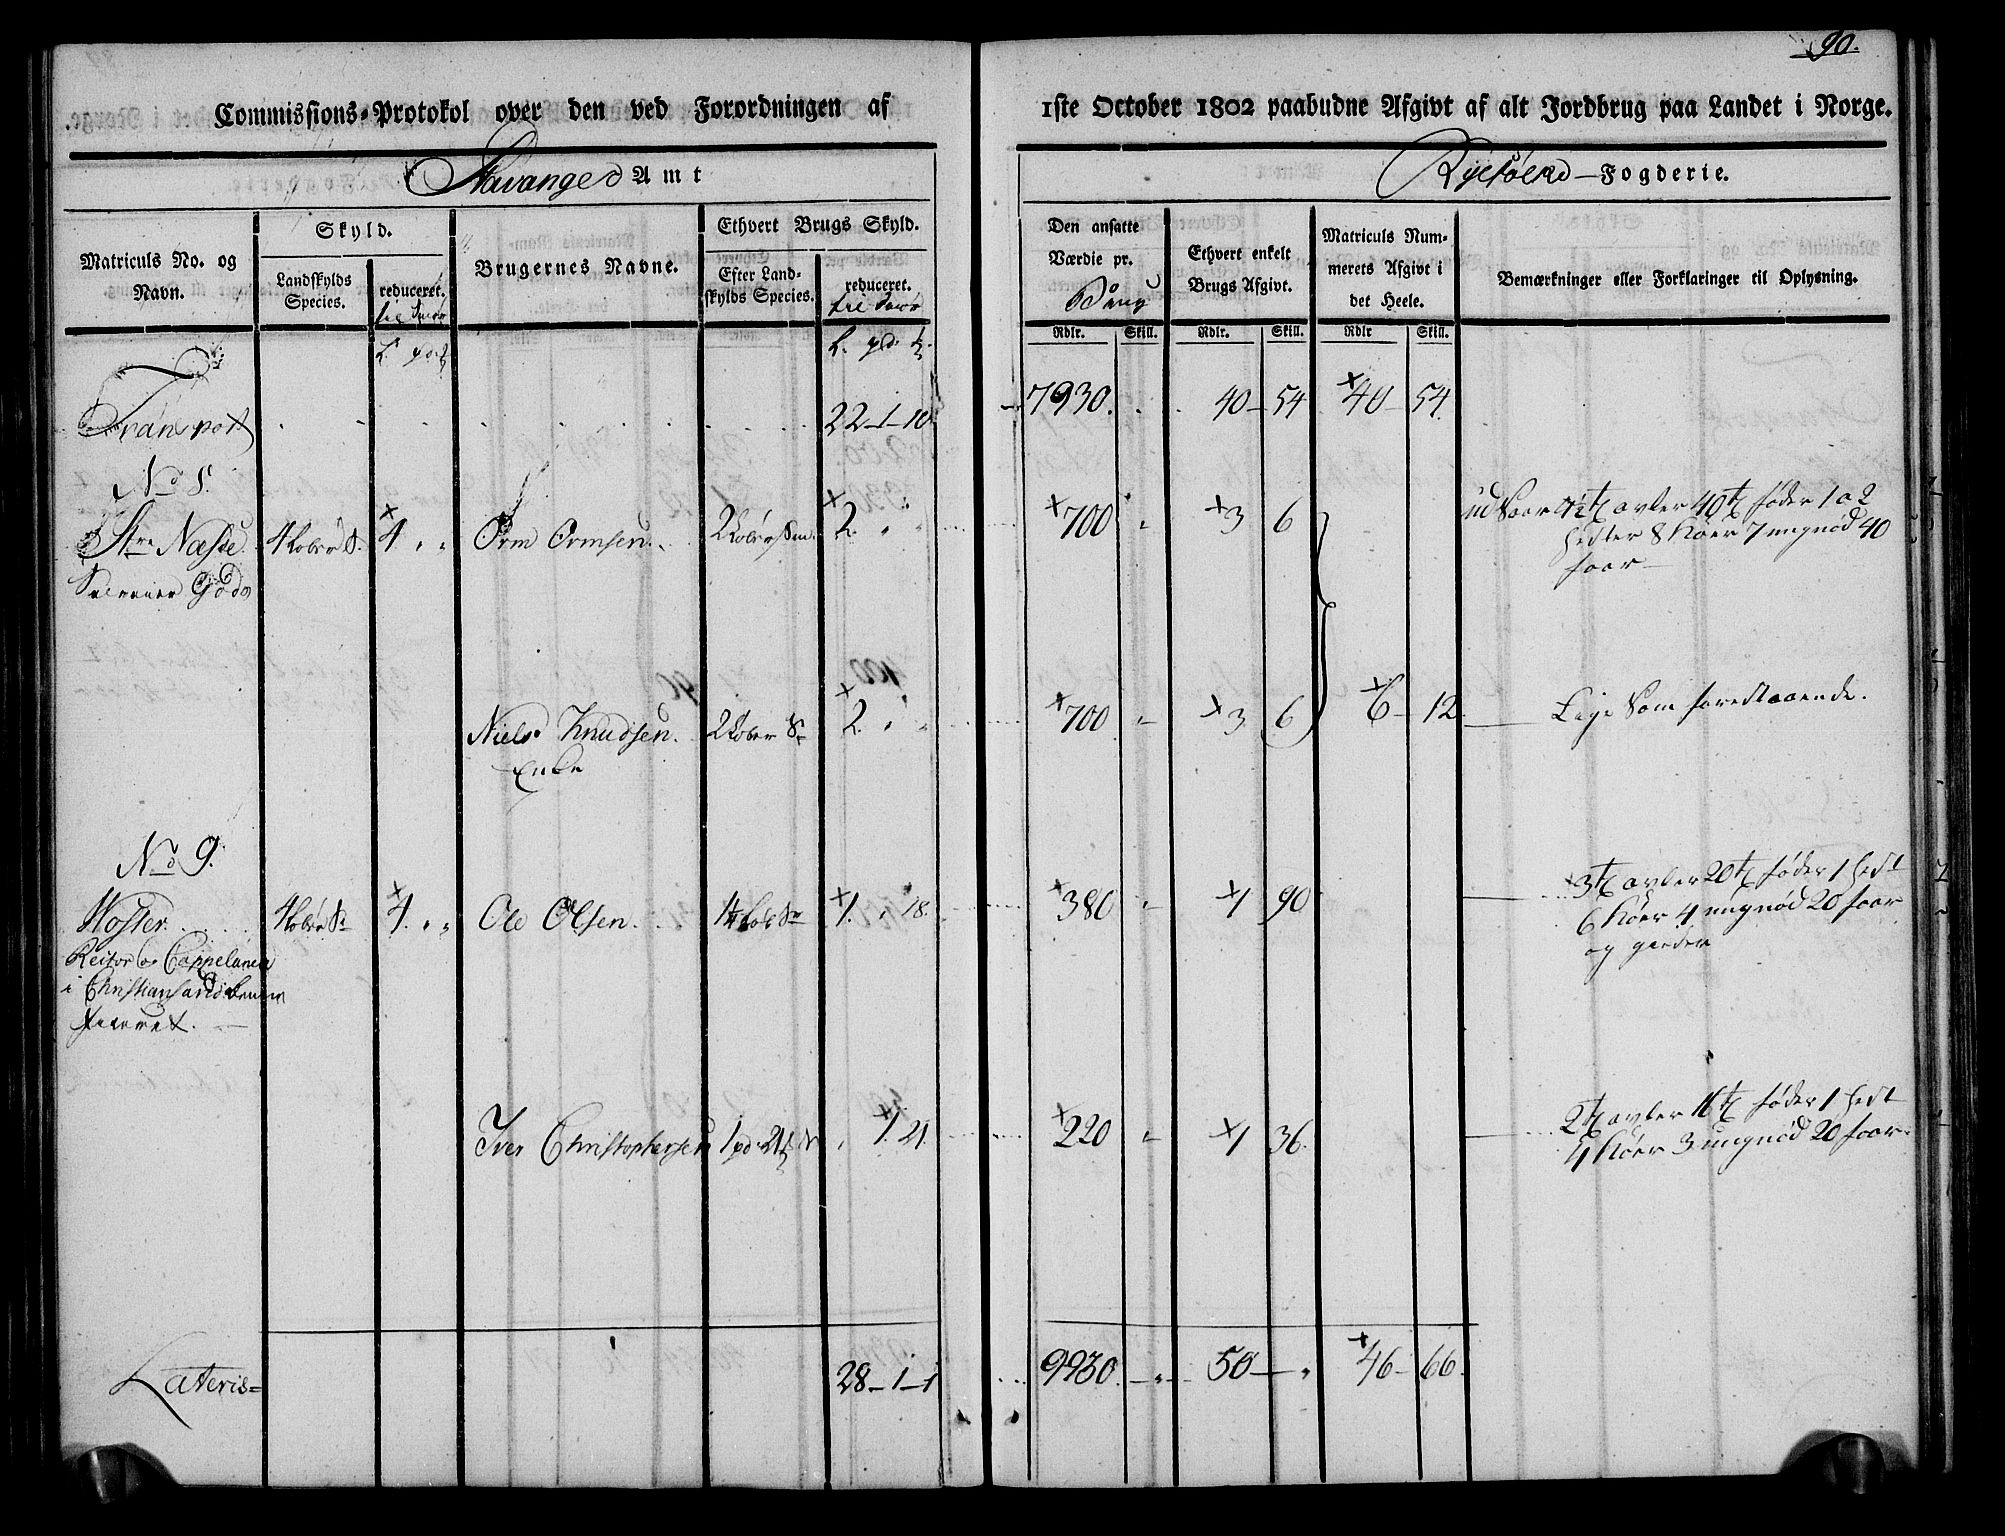 90.
Commissions-Protokol over den ved Forordningen af 1ste October 1802 paabudne Afgivt af alt Jordbrug paa Landet i Norge.
Stavanger Amt
Ryefylke Fogderie.
Matriculs No. og Navn.
Skyld.
Landskylds Species.
reduceret.
Brugernes Navne.
Ethvert Brugs Skyld.
Efter Landskylds Species.
reduceret.
Den ansatte Værdie pr. Brug
Ethvert enkelt Brugs Afgivt.
Matriculs Nummerets Afgivt i det Heele.
Bemærkninger eller Forklaringer til Oplysning.
Rdlr. Skill. Rdlr. Skill. Rdlr Skill.
Transport 22-1-10 7930. 40-54 40-54
No 8.
Næsse 4 4 Orm Ormsen 2 2. 700 3 6 avler 40 føder 1 a 2
Hester 8 Køer 7 ungnød 40
faar
Niels Knudsen 2 2. 700 3 6 6-12 Lige Som forestaaende.
Enke
No 9.
Høster 4 4 Ole Olsen 1. 18. 380 1 90 3 avler 20 føder 1 hest
6 Køer 4 ungnød 20 faar
og geeder
Rector og Cappelanen
i Christiansand
Iver Christophersen 1 pd 21 1. 21. 220 1 36 2 avler 16 føder 1 hest
4 Køer 3 ungnød 20 faar
Lateris 28-1-1 9930 50 46-66